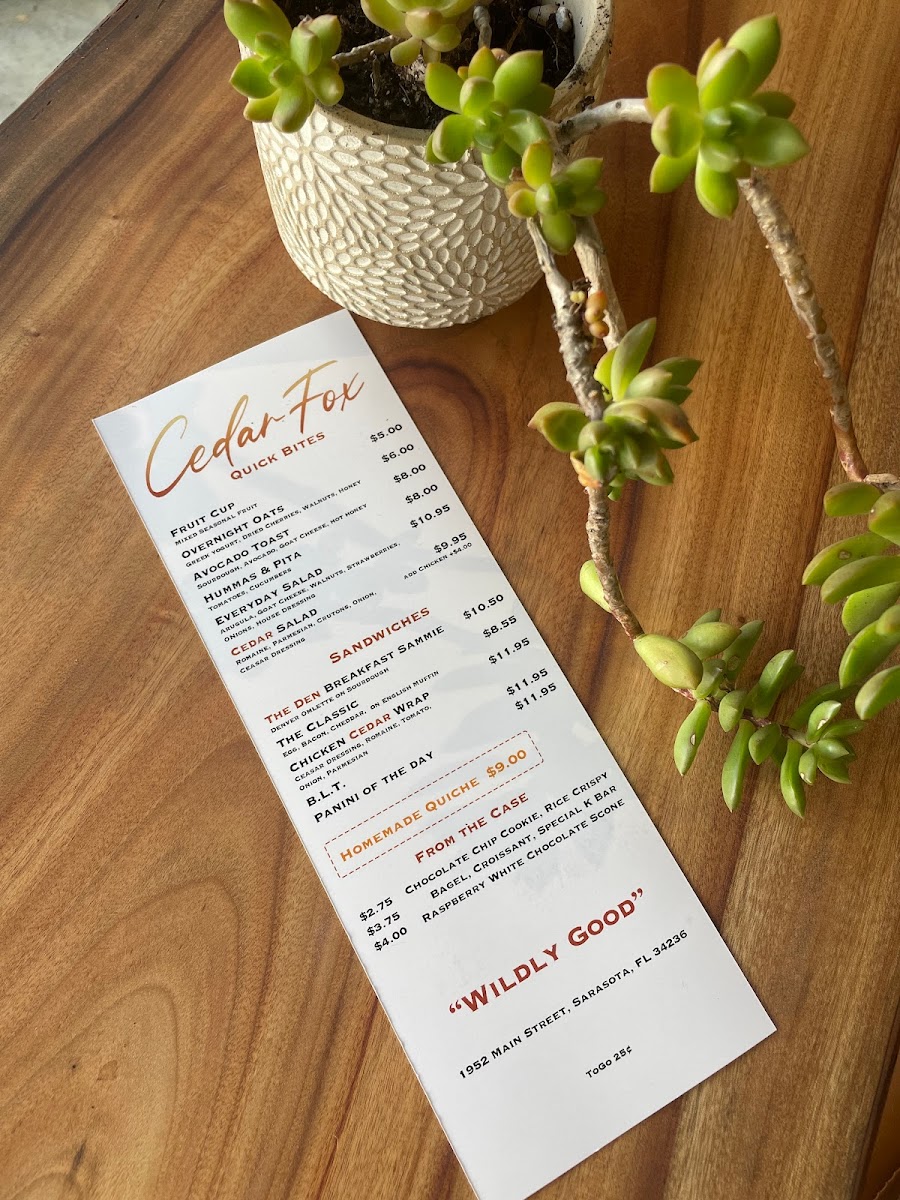 Cedar Fox
QUICK BITES
FRUIT CUP $5.00
MIXED SEASONAL FRUIT
OVERNIGHT OATS $6.00
GREEK YOGURT, DRIED CHERRIES, WALNUTS, HONEY
AVOCADO TOAST $8.00
SOURDOUGH, AVOCADO, GOAT CHEESE, HOT HONEY
HUMMAS & PITA $8.00
TOMATOES, CUCUMBERS
EVERYDAY SALAD $10.95
ARUGULA, GOAT CHEESE, WALNUTS, STRAWBERRIES,
ONIONS, HOUSE DRESSING
CEDAR SALAD $9.95
ROMAINE, PARMESAN, CRUTONS, ONION, ADD CHICKEN +$4.00
CEASAR DRESSING
SANDWICHES
THE DEN BREAKFAST SAMMIE $10.50
DENVER OMLETTE ON SOURDOUGH
THE CLASSIC $8.55
EGG, BACON, CHEDDAR, ON ENGLISH MUFFIN
CHICKEN CEDAR WRAP $11.95
CEASAR DRESSING, ROMAINE, TOMATO,
ONION, PARMESIAN
B.L.T. $11.95
PANINI OF THE DAY $11.95
HOMEMADE QUICHE $9.00
FROM THE CASE
$2.75 CHOCOLATE CHIP COOKIE, RICE CRISPY
$3.75 BAGEL, CROISSANT, SPECIAL K BAR
$4.00 RASPBERRY WHITE CHOCOLATE SCONE
"WILDLY GOOD"
1952 MAIN STREET, SARASOTA, FL 34236
TOGO 25¢